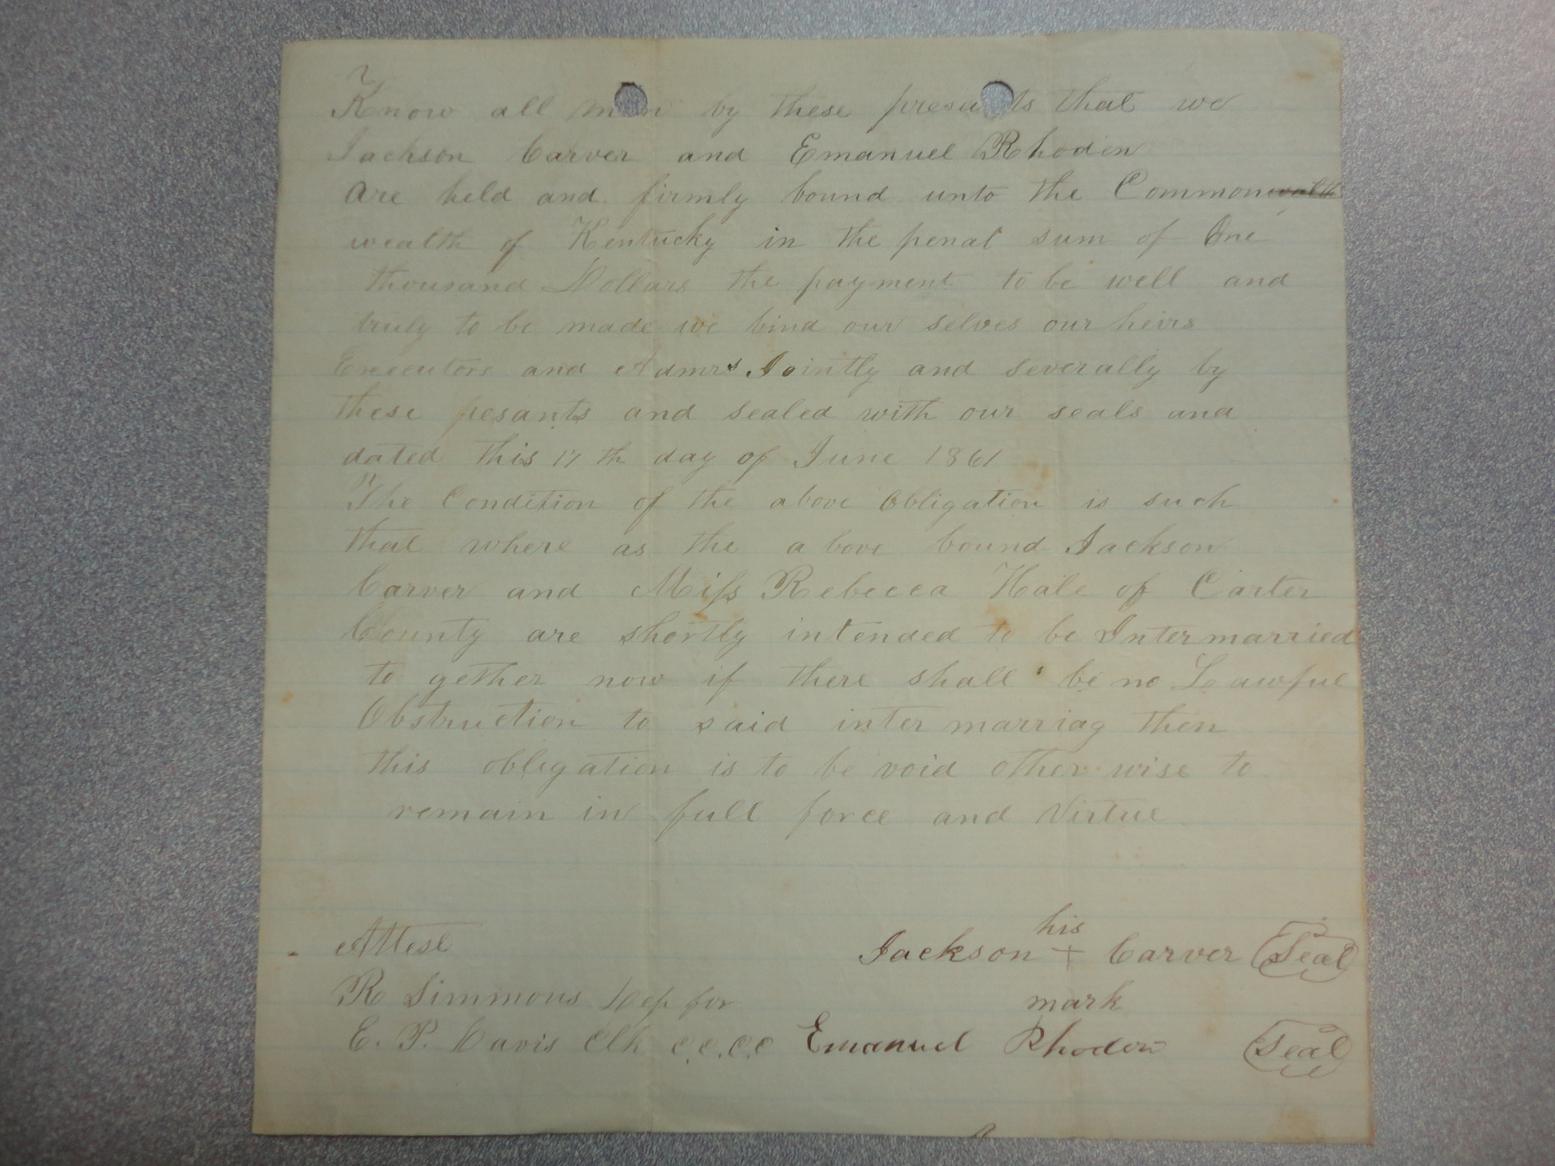 Know all men by these presants that we
Jackson Carver and Emanuel Rhoden
are held and firmly bound unto the Commonwealth
wealth of Kentucky in the penal sum of One
thousand Dollars the payment to be well and
truly to be made we bind our selves our heirs
Executors and Admrs Jointly and severally by
these pesants and sealed with our seals and
dated this 17th day of June 1861
The Condition of the above Obligation is such
that where as the above bound Jackson
Carver and Miss Rebecca Hale of Carter
County are shortly intended to be Intermarried
to gether now if there shall be no Lawful
Obstruction to said inter marriag then
this obligation is to be void other wise to
remain in full force and Virtue
his
Attest Jackson + Carver (Seal)
R Simmons Dep for mark
E. P. Davis Clk C.C.C.C Emanuel Rhoden (Seal)